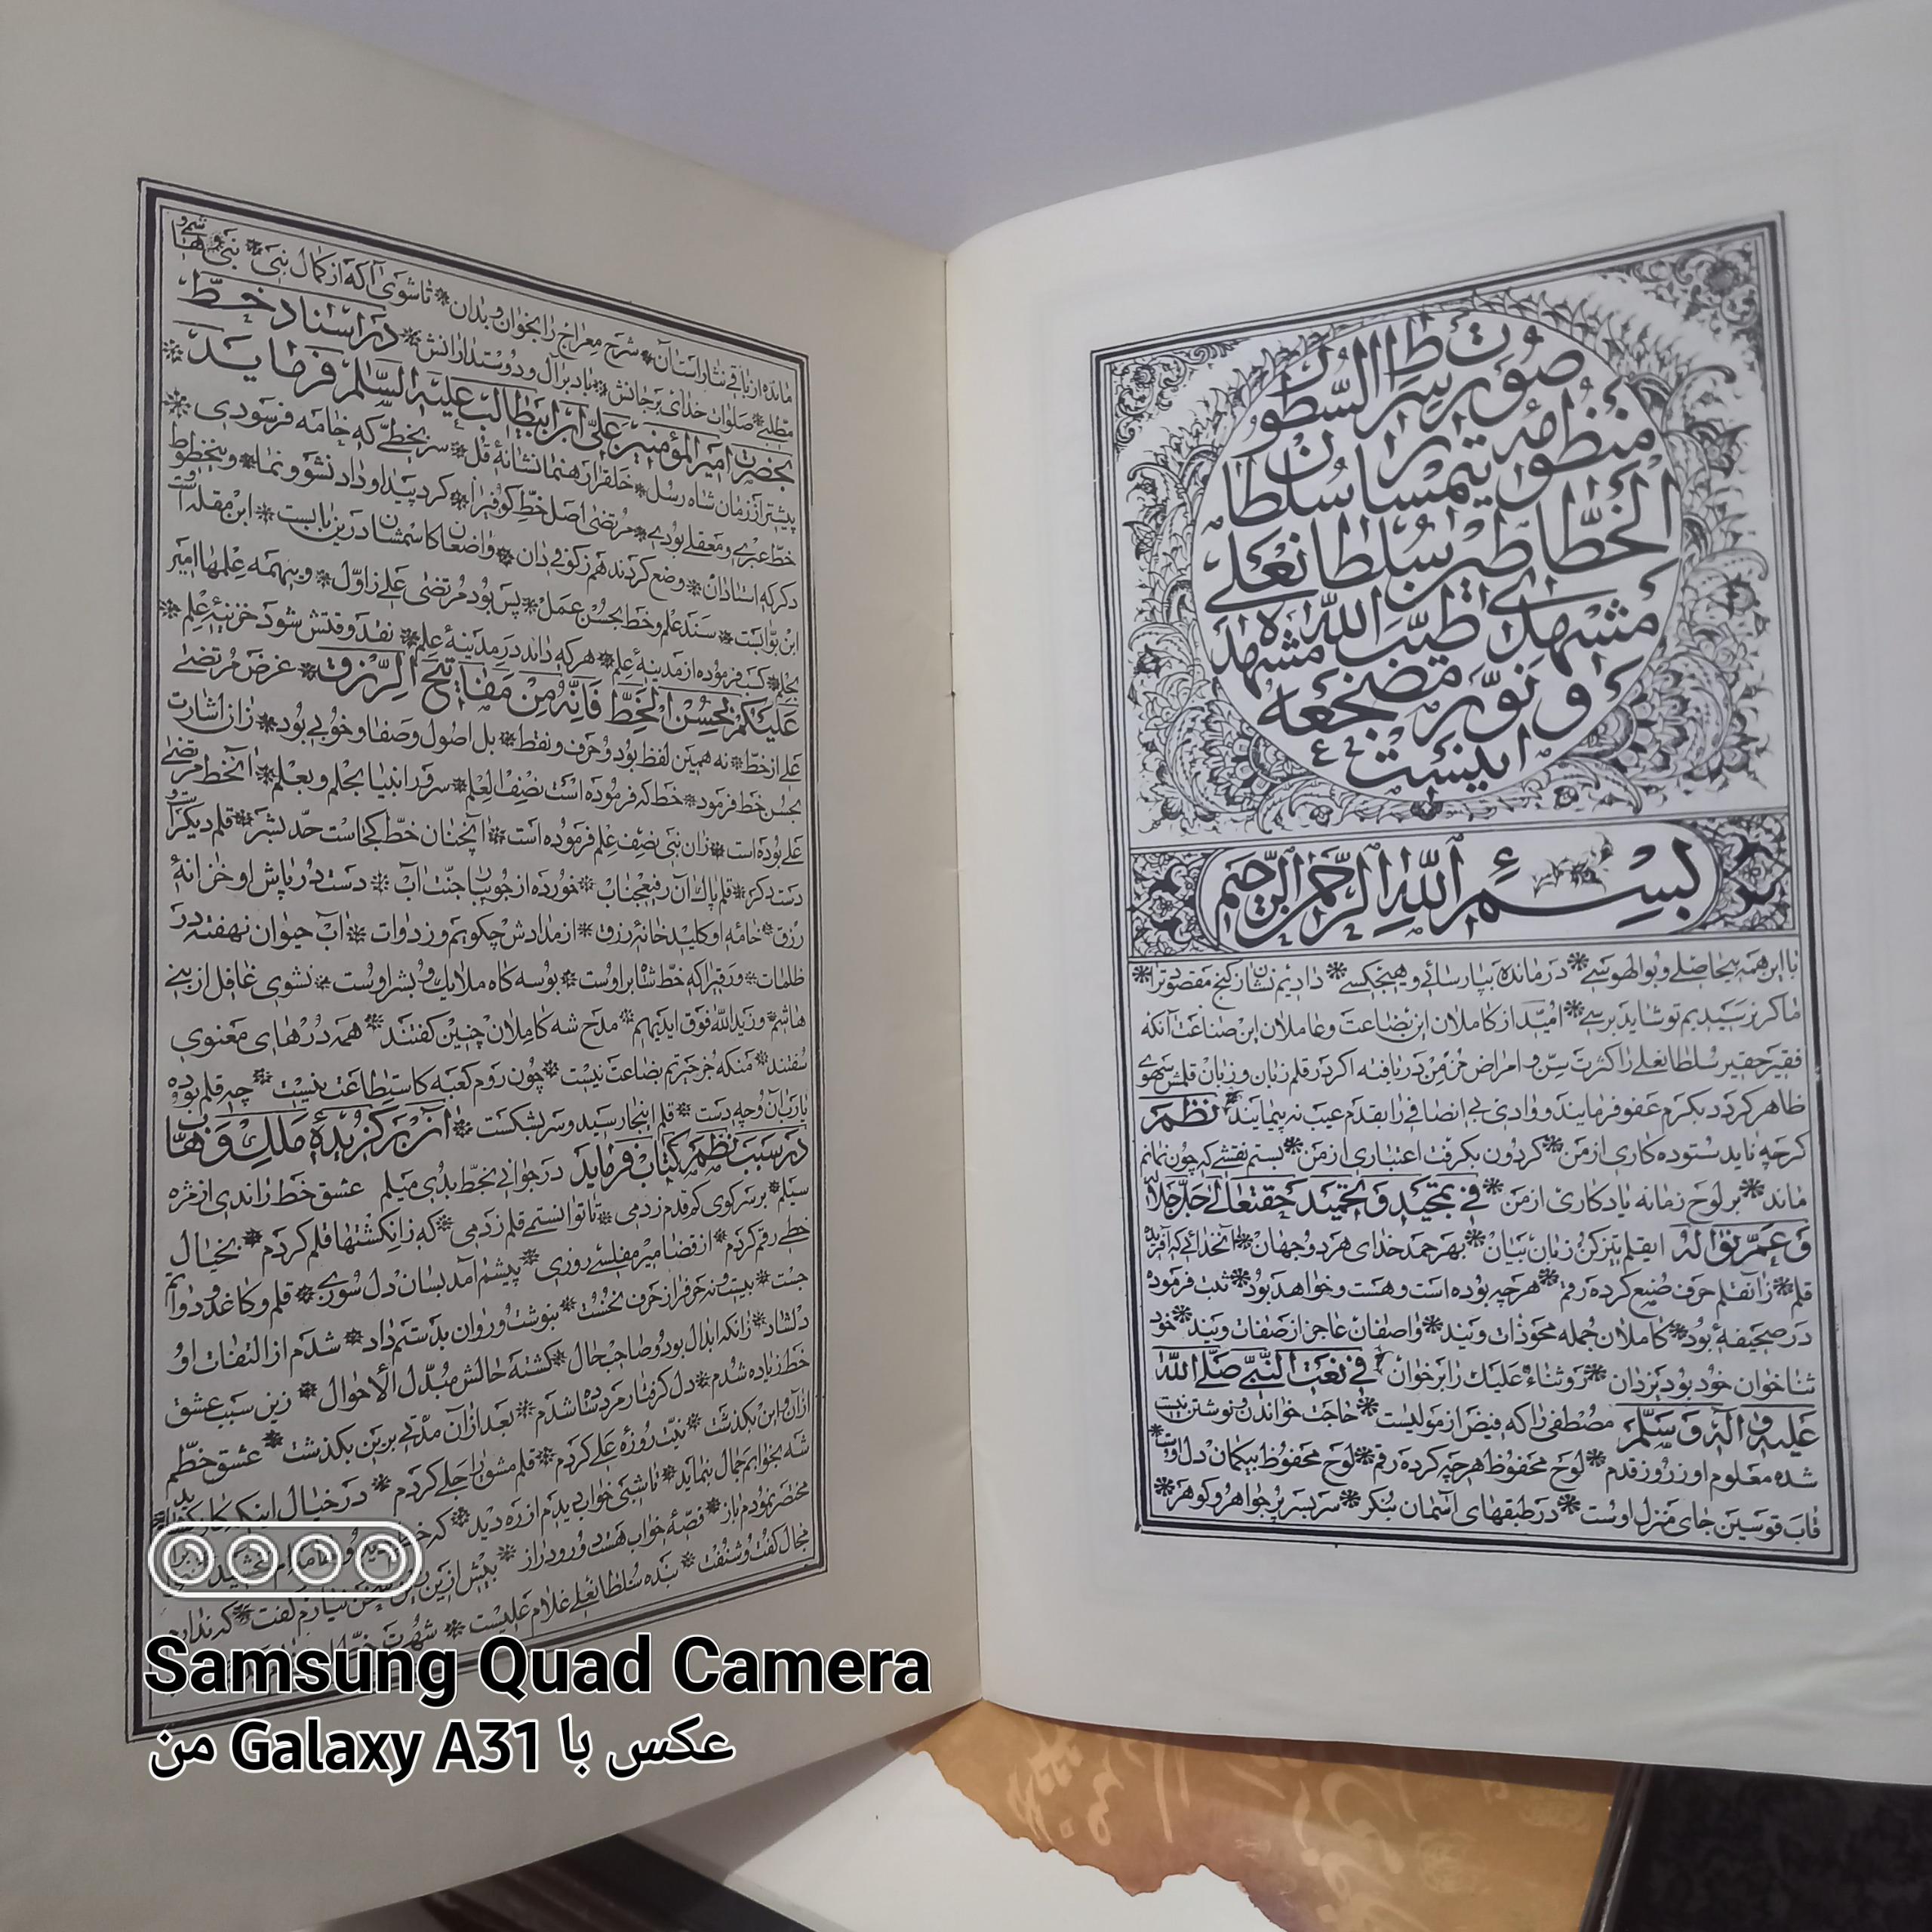 صورت سر السطور
منظومه تیمسار سلطان
الخطاطین سلطانعلی
مشهدی طیب الله مشهده
و نور مضجعه
اینست
بسم الله الرحمن الرحیم
با این همه بیحاصلی و بوالهوسی * درمانده بپارسائی و هیچکسی * دادیم نشان ز کنج مقصود ترا *
ما کر نرسیدیم تو شاید برسی * امید از کاملان این بضاعت و عاملان این صناعت آنکه
فقیر حقیر سلطانعلی را کثرت سن و امراض مزمن دریافته اکر در قلم زبان و زبان قلمش سهوی
ظاهر کردد بکرم عفو فرمایند و وادی بی انصافی را بقدم عیب نه پیمایند نظم
کرچه ناید ستوده کاری از من * کردون بکرفت اعتباری از من * بستم نقشی که چون نمانم
ماند * بر لوح زمانه یادکاری از من * فی تمجید و تحمید حقتعالی جل جلاله
و عم نواله ایقلم تیز کن زبان بیان * بهر حمد خدای هر دو جهان * آنخدائی که آفریده
قلم * زانقلم حرف صنع کرده رقم * هرچه بوده است و هست و خواهد بود * ثبت فرموده
در صحیفهٔ بود * کاملان جمله محو ذات ویند * واصفان عاجز از صفات ویند * خود
ثناخوان خود بود یزدان * رو ثناء علیک را برخوان فی نعت النبی صلی الله
علیه و آله و سلم مصطفی را که فیض از مولیست * حاجت خواندن و نوشتن نیست
شده معلوم او ز روز قدم * لوح محفوظ هرچه کرده رقم * لوح محفوظ بیکمان دل اوست *
قاب قوسین جای منزل اوست * در طبقهای آسمان بنکر * سر بسر پر جواهر و کوهر *
مانده از باقی نثار استان * شرح معراج را بخوان و بدان * تا شوی آکه از کمال نبی * نبی هاشمی و
مطلبی * صلوات خدای بر جانش * باد بر آل و دوستدارانش * در اسناد خط
بحضرت امیرالمؤمنین علی ابن ابیطالب علیه السلم فرماید *
پیشتر از زمان شاه رسل * خلق را رهنما نشانهٔ قل * سر بخطی که خامه فرسودی *
خط عبری و معقلی بودی * مرتضی اصل خط کوفی را * کرد پیدا و داد نشو و نما * وین خطوط
دکر که استادان * وضع کردند هم ز کوفی دان * واضعان کاسمشان درین بابست * ابن مقله است
ابن بوابست * سند علم و خط بحسن عمل * پس بود مرتضی علی ز اول * و بهمه علمها امیر
علیکم بحسن الخط فانه من مفاتیح الرزق * غرض مرتضی
علی از خط * نه همین لفظ بود و حرف و نقط * بل اصول و صفا و خوبی بود * زان اشارت
بحسن خط فرمود * خط که فرموده است نصف العلم * سرور انبیا بحلم و بعلم * آنخط مرتضی
علی بوده است * زان نبی نصف علم فرموده است * آنچنان خط کجاست حد بشر * قلم دیکر است و
دست دکر * قلم پاک آن رفیع جناب * خورده از جویبار جنت آب * دست دربار پاش او خزانهٔ
رزق * خامهٔ او کلید خانهٔ رزق * از مدادش چکویم و ز دوات * آب حیوان نهفته در
ظلمات * ورقیرا که خط شاه بر اوست * بوسه کاه ملایک و بشر اوست * نشوی غافل از بنی
هاشم * وز یدالله فوق ایدیهم * مدح شه کاملان چنین کفتند * همه درهای معنوی
سفتند * منکه جز حیرتم بضاعت نیست * چون روم کعبه کاستطاعت نیست * چه قلم بوده
یارب آن و چه دست * قلم اینجا رسید و سر بشکست *
در سبب نظم کتاب فرماید در جوانی بخط بدی میلم عشق خط راندی از مژه
سیلم * بر سر کوی کم قدم زدمی * تا توانستمی قلم زدمی * که ز انکشتها قلم کردم * بخیال
خطی رقم کردم * از قضا میر مفلسی روزی * پیشم آمد بسان دل سوزی * قلم و کاغذ و دواتم
جست * بیست و نه حرف از حرف نخست * بنوشت و روان بدستم داد * شدم از التفات او
دلشاد * زانکه ابدال بود و صاحب حال * کشته حالش مبدل الاحوال * زین سبب عشق
خط زیاده شدم * دل کرفتار مرد ساده شدم * بعد از آن مدتی برین بکذشت * عشق خطم
از آن و این بکذشت * نیت روزهٔ علی کردم * قلم مشق را جلی کردم * در خیال اینکه
شه بخوابم جمال بنماید * تا شبی خواب دیدم از ره دید *
مختصر نمودم باز * قصهٔ خواب هست دور و دراز * بیش ازین
مجال کفت و شنفت * بنده سلطانعلی غلام علیست * شهرت
Samsung Quad Camera
عکس با Galaxy A31 من